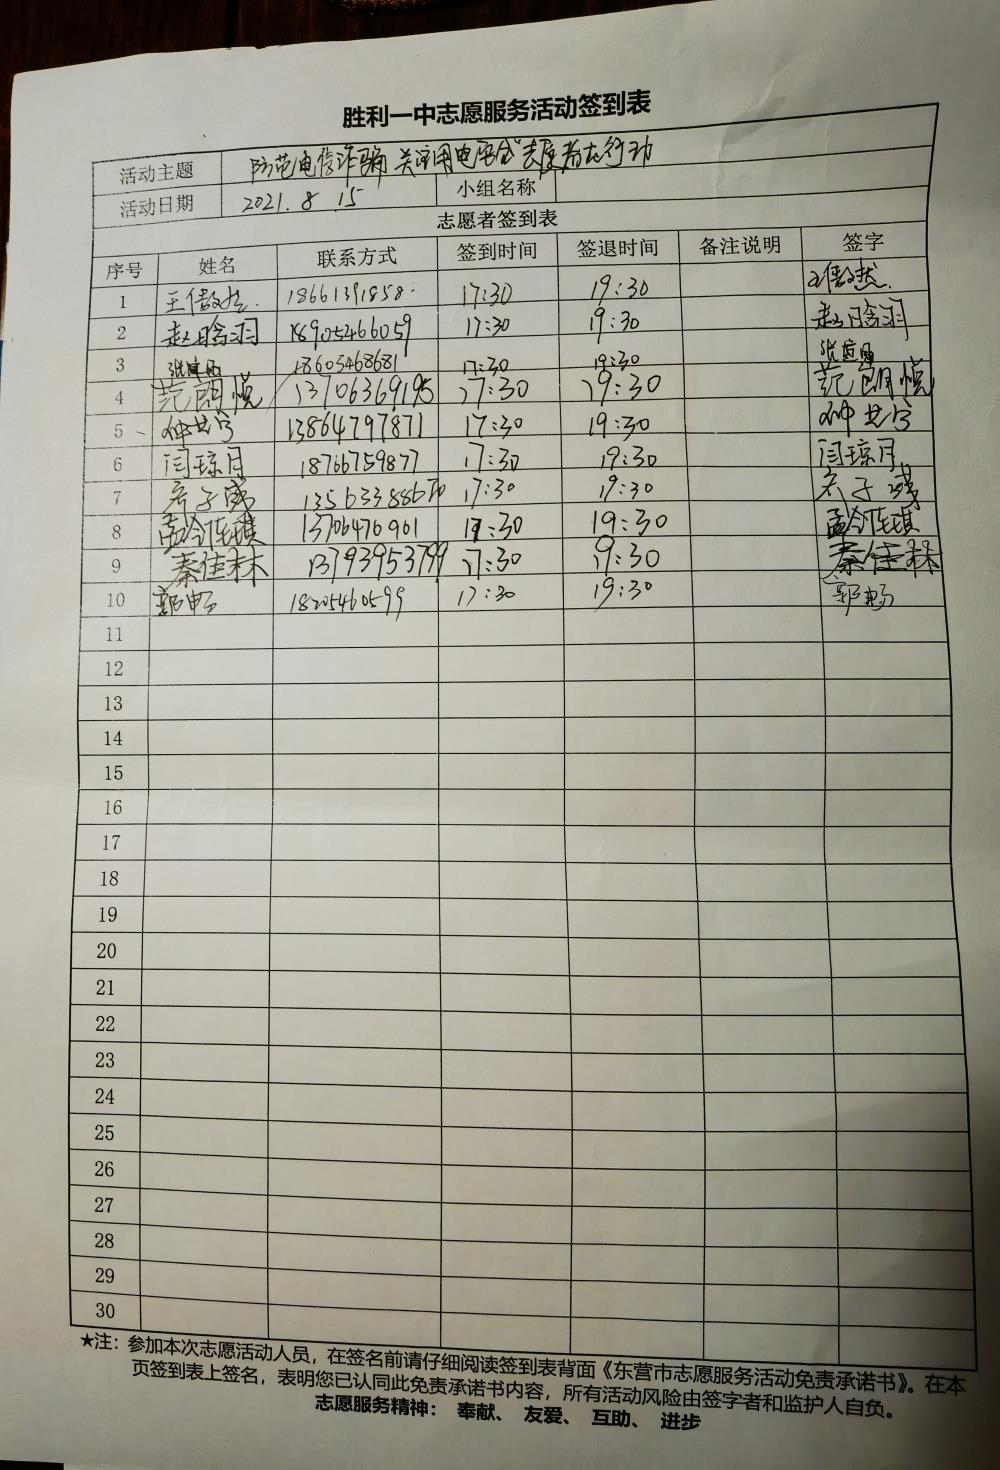 胜利一中志愿服务活动签到表
活动主题 防范电信诈骗 关注用电安全 志愿者在行动
活动日期 2021.8.15 小组名称
志愿者签到表
序号 姓名 联系方式 签到时间 签退时间 备注说明 签字
1 王傲然 18661391858 17:30 19:30 王傲然
2 赵晗羽 18905466059 17:30 19:30 赵晗羽
3 18605468681 17:30 19:30
4 范朗悦 13706369195 17:30 19:30 范朗悦
5 13864797871 17:30 19:30
6 闫琼月 18766759877 17:30 19:30 闫琼月
7 17:30 19:30
8 13706476961 19:30
9 秦佳林 13793953799 17:30 19:30 秦佳林
10 郭畅 18205460599 17:30 19:30 郭畅
11
12
13
14
15
16
17
18
19
20
21
22
23
24
25
26
27
28
29
30
★注：参加本次志愿活动人员，在签名前请仔细阅读签到表背面《东营市志愿服务活动免责承诺书》。在本
页签到表上签名，表明您已认同此免责承诺书内容，所有活动风险由签字者和监护人自负。
志愿服务精神： 奉献、 友爱、 互助、 进步